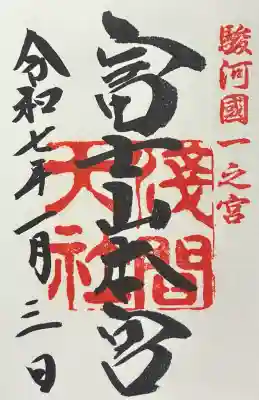 駿河國一之宮
富士山本宮
淺間大社
令和七年一月三日